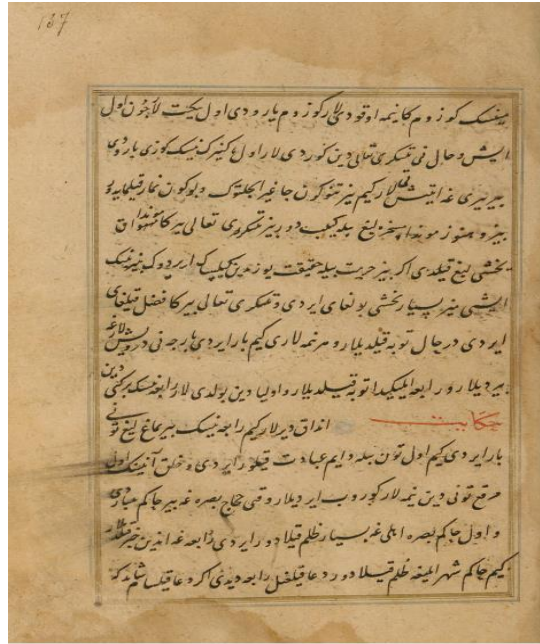 137
مینینک کوزوم کا نیمه اوقودی لار کوزوم یارودی اول یکیت لار چون اول
ایش و حال نی تنکری تعالی دین کوردی لار اول کنیزک نینک کوزی یارودی
بیر بیری غه ایتیش قیلا لار کیم بیز تنو کون جاغیر ایجلتوک و بو کون نماز قیلمایدو
بیز و هنوز موندا مسخره لیغ بیله کیلیب دوربیز تنکری تعالی بیزکا مونداق
یخشی لیغ قیلدی اکر بیز حرمت بیله حقیقت یوزیدین کیلیب اردوک بیزنینک
ایشی میز بسیار یخشی بولغای ایردی و تنکری تعالی بیزکا فضل قیلغای
ایردی در حال توبه قیلدیلار و هر نمه لاری کیم بار ایردی بارچه نی درویش لارغه
بیردیلار و رابعه ایلیکیدا توبه قیلدیلار و اولیا دین بولدی لار رابعه نینک برکتی دین
حکایت انداق دیرلار کیم رابعه نینک بیر یماغ لیغ تونی
بار ایردی کیم اول تون بیله دایم عبادت قیلور ایردی و خلق آنینک اول
مرقع تونی دین نیمه لار کوروب ایردیلار وقتی حجاج بصره غه بیر حاکم یباردی
و اول حاکم بصره ایلی غه بسیار ظلم قیلا دور ایردی رابعه غه اندین خبر قیلدیلار
کیم حاکم شهر ایلیغه ظلم قیلا دور دعا قیلغیل رابعه دیدی اکر دعا قیلسام